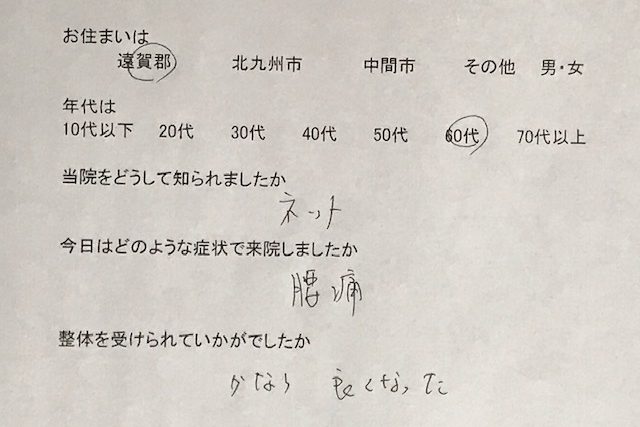 お住まいは
遠賀郡 北九州市 中間市 その他 男・女
年代は
10代以下 20代 30代 40代 50代 60代 70代以上
当院をどうして知られましたか
ネット
今日はどのような症状で来院しましたか
腰痛
整体を受けられていかがでしたか
かなり 良くなった